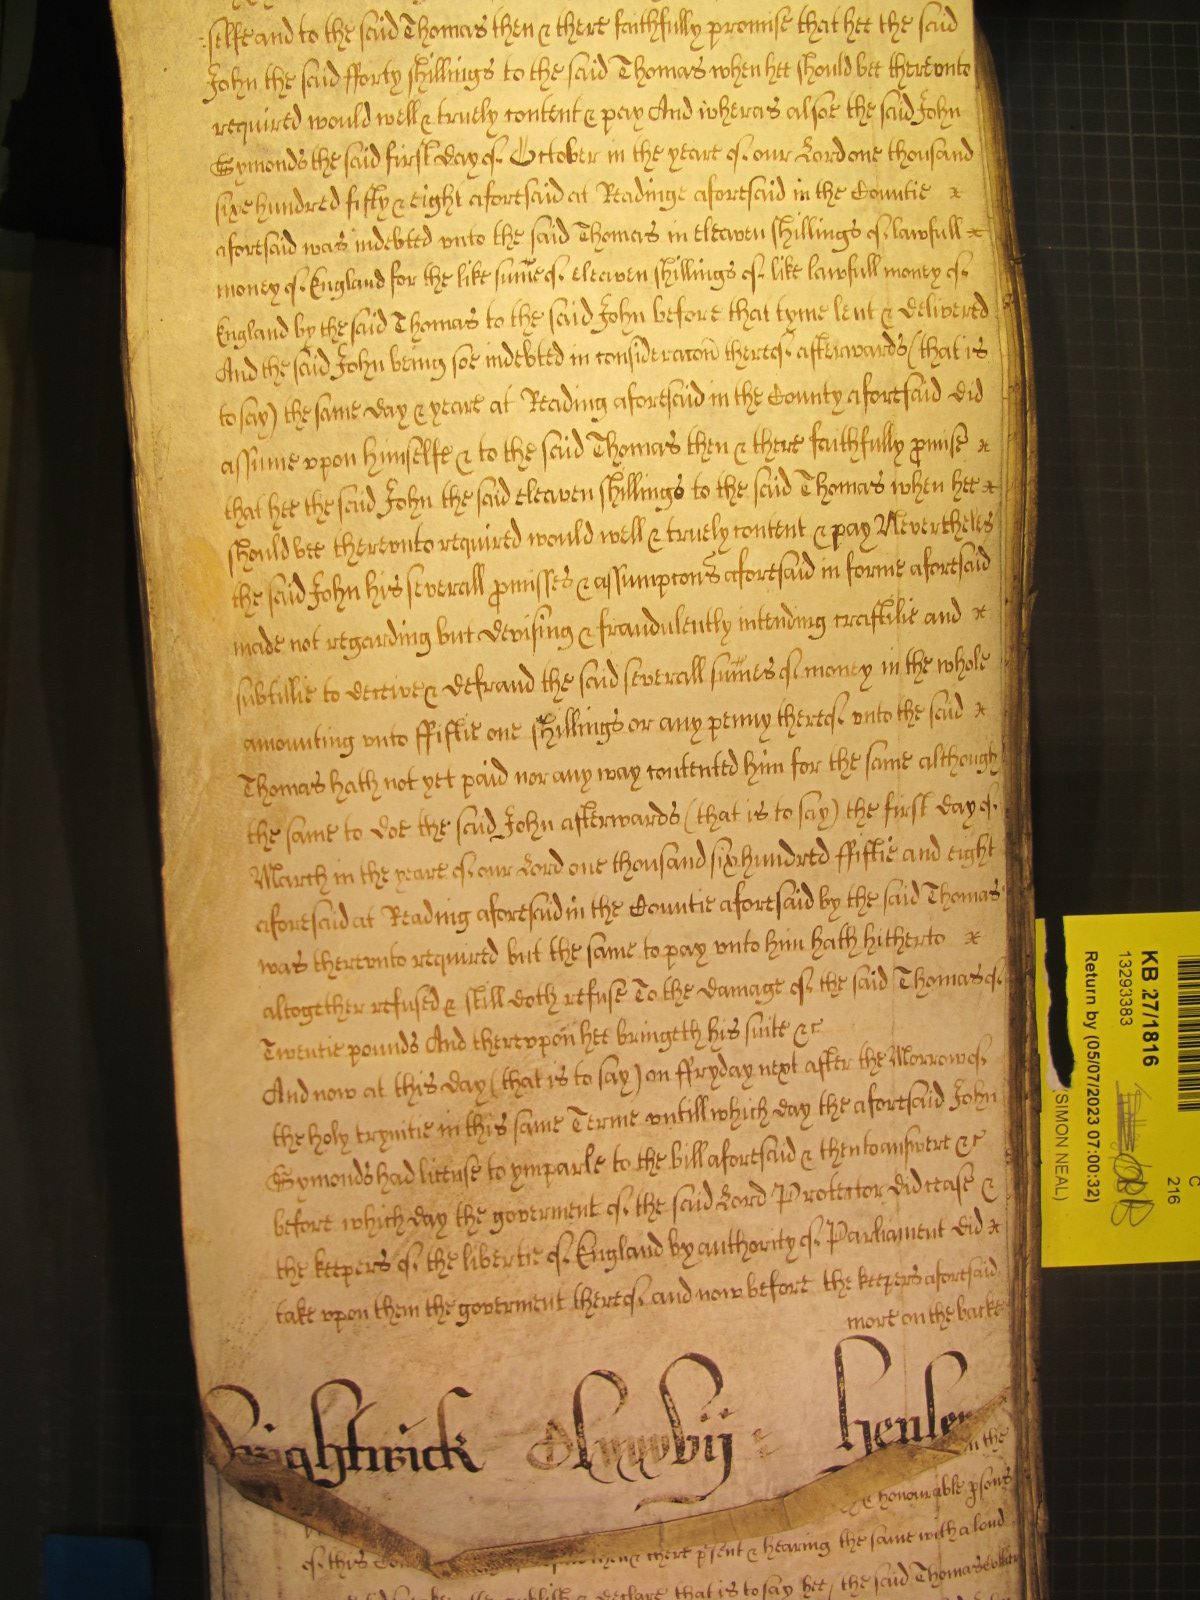 selfe and to the said Thomas then & there faithfully promise that hee the said
John the said fforty shillings to the said Thomas when hee should bee therevnto
required would well & truely content & pay And wheras alsoe the said John
Symonds the said first day of October in the yeare of our Lord one thousand
sixe hundred fifty & eight aforesaid at Readinge aforesaid in the Countie
aforesaid was indebted vnto the said Thomas in eleaven shillings of lawfull
money of England for the like sume of eleaven shillings of like lawfull money of
England by the said Thomas to the said John before that tyme lent & delivered
And the said John being soe indebted in consideracon thereof afterwards (that is
to say) the same day & yeare at Reading aforesaid in the County aforesaid did
assume vpon himselfe & to the said Thomas then & there faithfully pmise
that hee the said John the said eleaven shillings to the said Thomas when hee
should bee therevnto required would well & truely content & pay Nevertheles
the said John his severall pmisses & assumptons aforesaid in forme aforesaid
made not regarding but devising & fraudulently intending craftilie and
subtillie to deceive & defraud the said severall sumes of money in the whole
amounting vnto ffiftie one shillings or any penny thereof vnto the said
Thomas hath not yet paid nor any way contented him for the same although
the same to doe the said John afterwards (that is to say) the first day of
March in the yeare of our Lord one thousand six hundred ffiftie and eight
aforesaid at Reading aforesaid in the Countie aforesaid by the said Thomas
was therevnto required but the same to pay vnto him hath hitherto
altogether refused & still doth refuse To the damage of the said Thomas of
Twentie pounds And therevpon hee bringeth his suite &c
And now at this day (that is to say) on ffryday next after the Morrow of
the holy trynitie in this same Terme vntill which day the aforesaid John
Symonds had license to ymparle to the bill aforesaid & then to answere &c
before which day the goverment of the said Lord Protector did cease &
the keepers of the libertie of England by authority of Parliament did
take vpon them the goverment thereof and now before the keepers aforesaid
more on the backe
Brightwick henley
in the
honourable psons
of this then & there psent & hearing the same with a loud
publish & declare that is to say hee (the said Thomas
KB 27/1816
13293383
Return by (05/07/2023 07:00:32)
(SIMON NEAL)
C
216